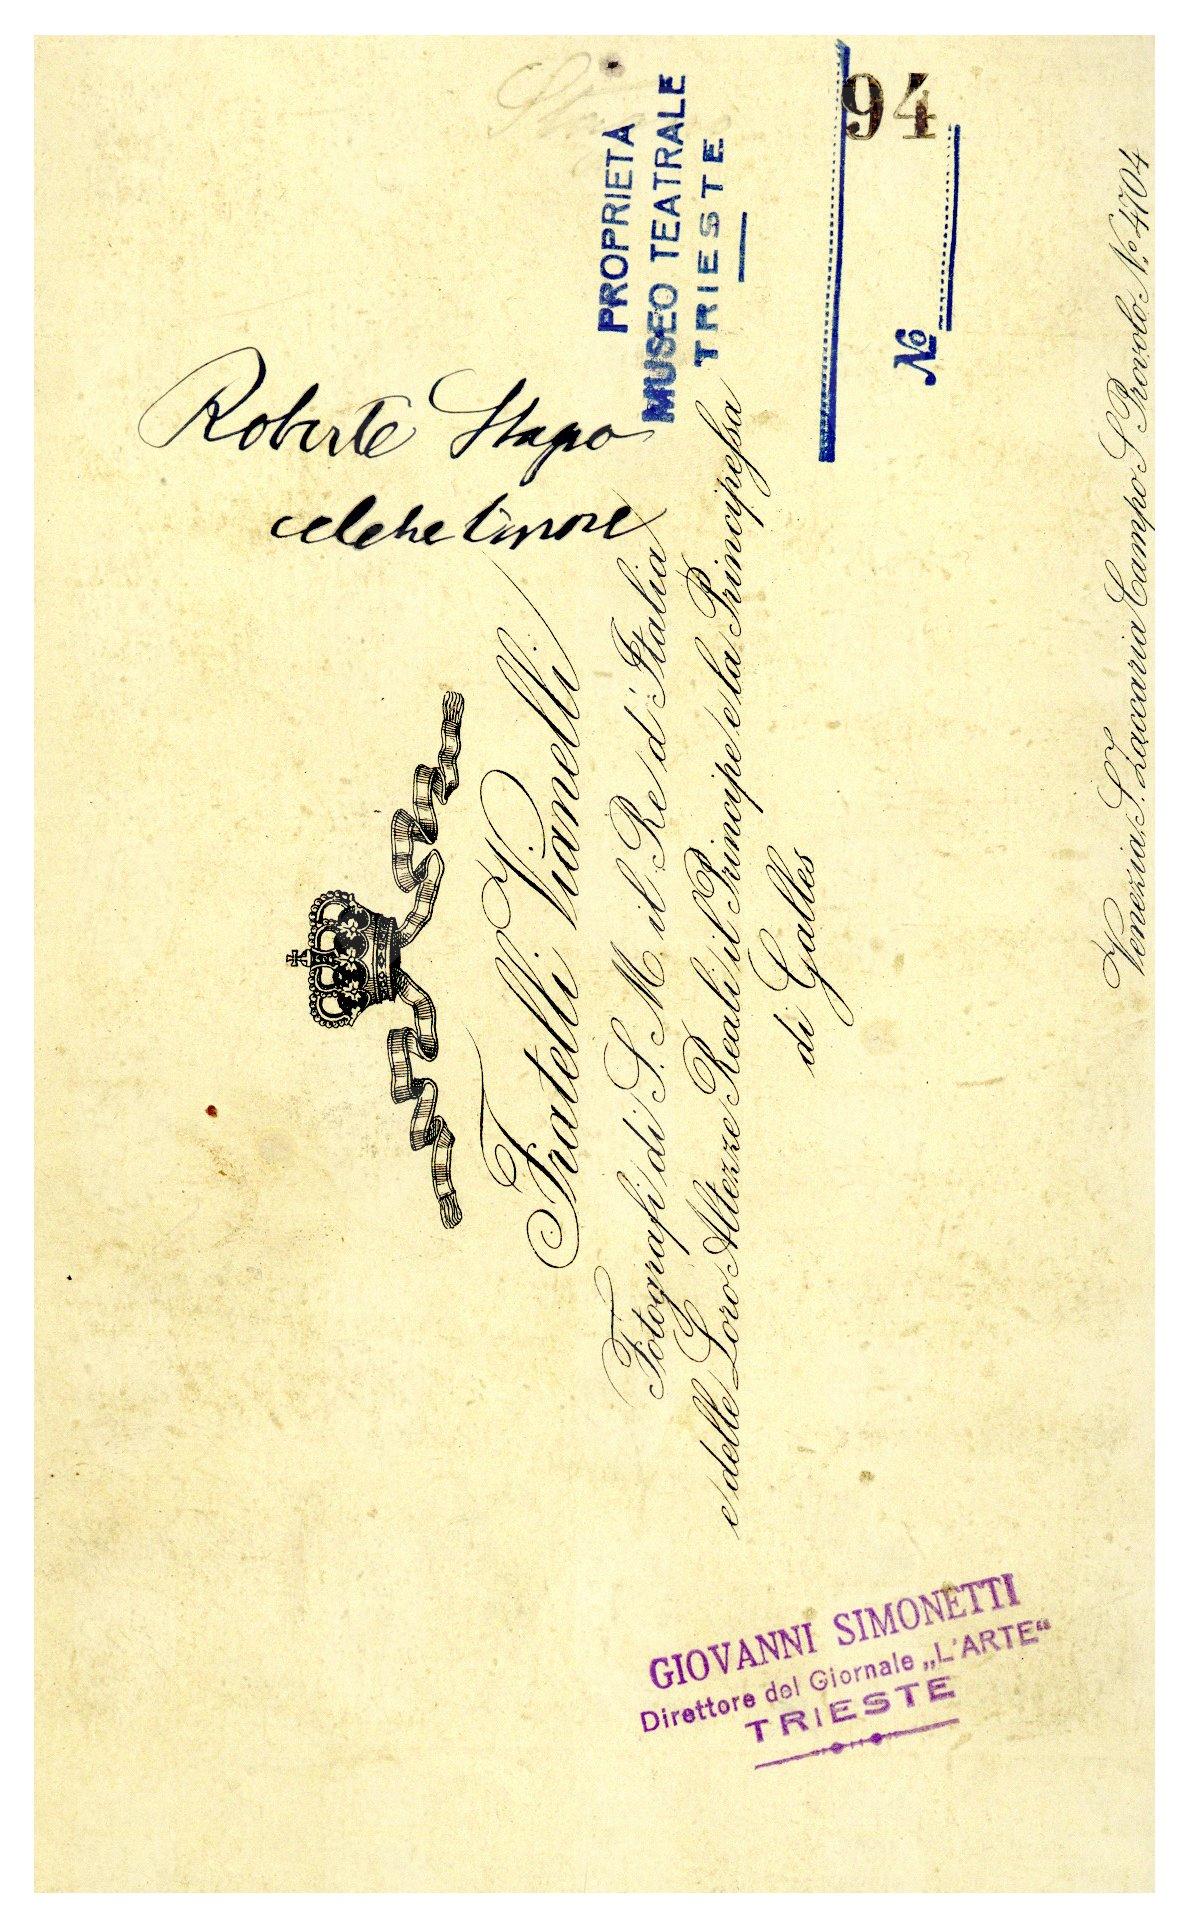 PROPRIETÀ
MUSEO TEATRALE
TRIESTE
94
No
Roberto Stagno
celebre tenore
Fratelli Vianelli
Fotografi di S. M. il Re d'Italia
e delle Loro Altezze Reali il Principe e la Principessa
di Galles
Venezia, S. Zaccaria Campo S. Provolo No. 4704
GIOVANNI SIMONETTI
Direttore del Giornale „L'ARTE“
TRIESTE